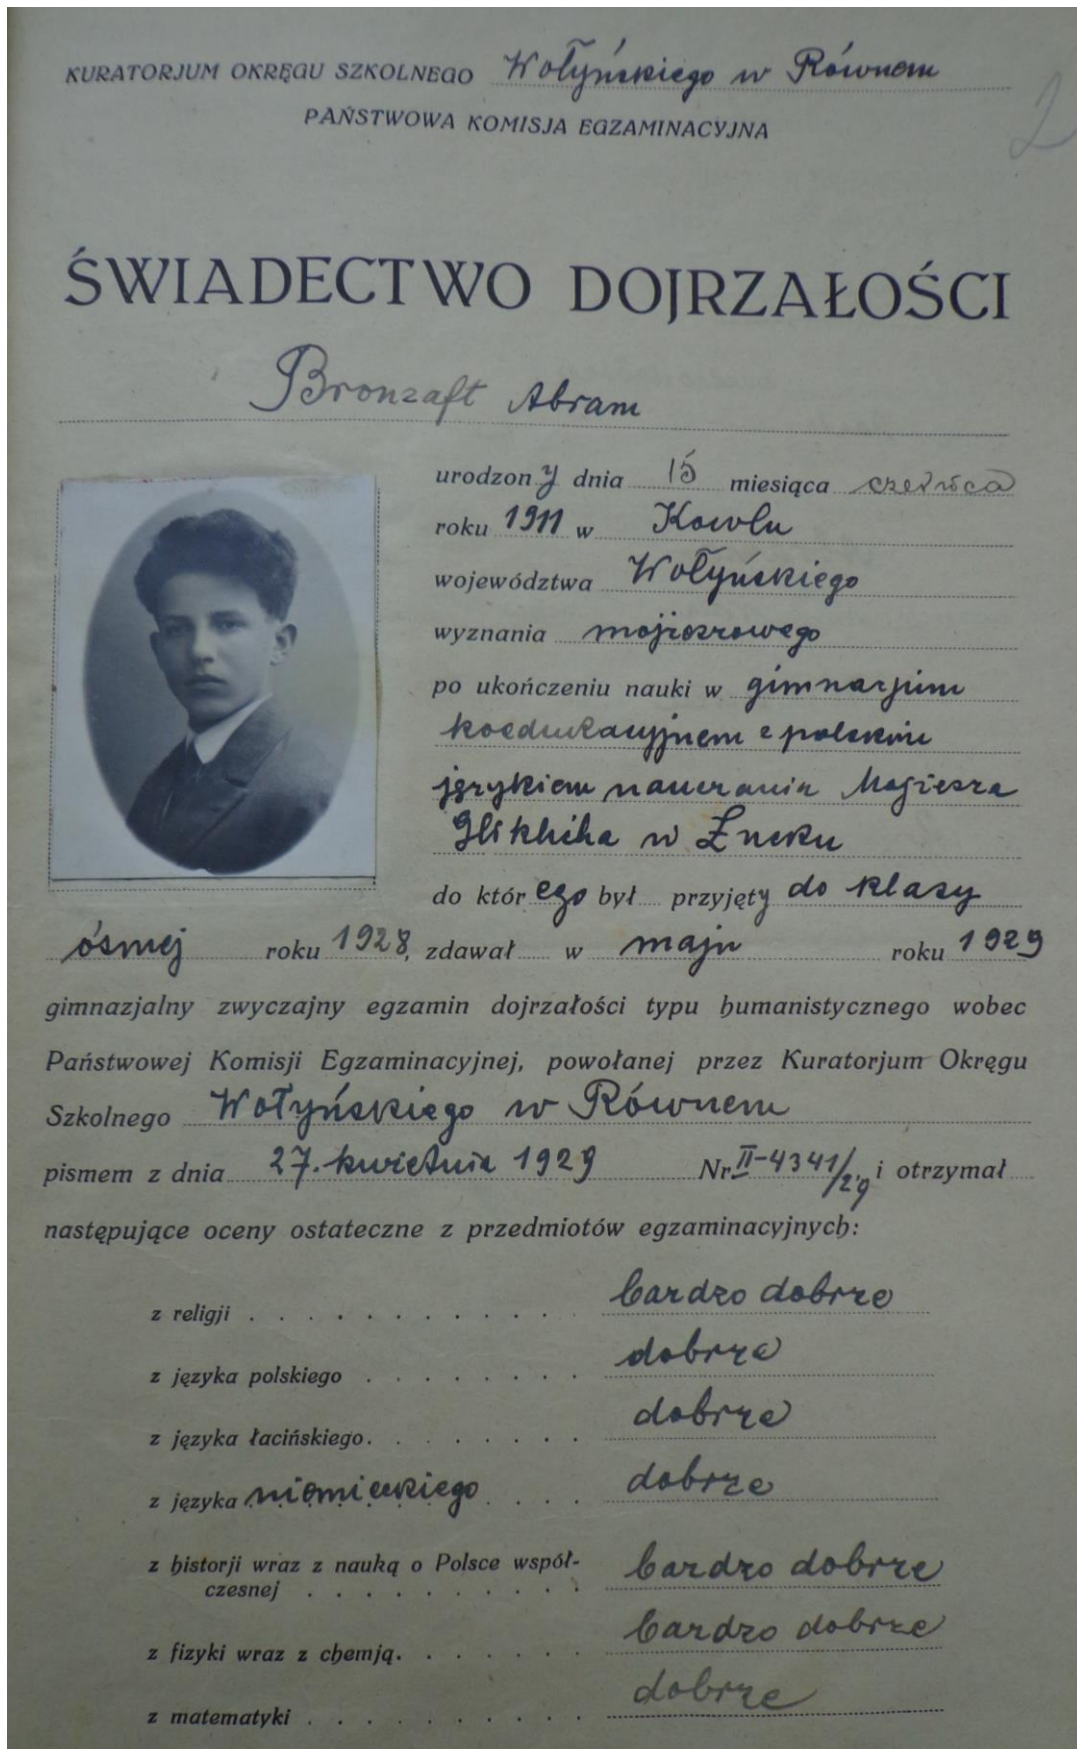 KURATORJUM OKRĘGU SZKOLNEGO Wołyńskiego w Równem
PAŃSTWOWA KOMISJA EGZAMINACYJNA
2
ŚWIADECTWO DOJRZAŁOŚCI
Bronzaft Abram
urodzony dnia 15 miesiąca czerwca
roku 1911 w Kowlu
województwa Wołyńskiego
wyznania mojżeszowego
po ukończeniu nauki w gimnazjum
koedukacyjnem z polskim
językiem nauczania Mojżesza
Glikliha w Łucku
do którego był przyjęty do klasy
ósmej roku 1928, zdawał w maju roku 1929
gimnazjalny zwyczajny egzamin dojrzałości typu humanistycznego wobec
Państwowej Komisji Egzaminacyjnej, powołanej przez Kuratorjum Okręgu
Szkolnego Wołyńskiego w Równem
pismem z dnia 27. kwietnia 1929 Nr II-4341/29 i otrzymał
następujące oceny ostateczne z przedmiotów egzaminacyjnych:
z religji bardzo dobrze
z języka polskiego dobrze
z języka łacińskiego. dobrze
z języka niemieckiego dobrze
z historji wraz z nauką o Polsce współ-
czesnej bardzo dobrze
z fizyki wraz z chemją. bardzo dobrze
z matematyki dobrze